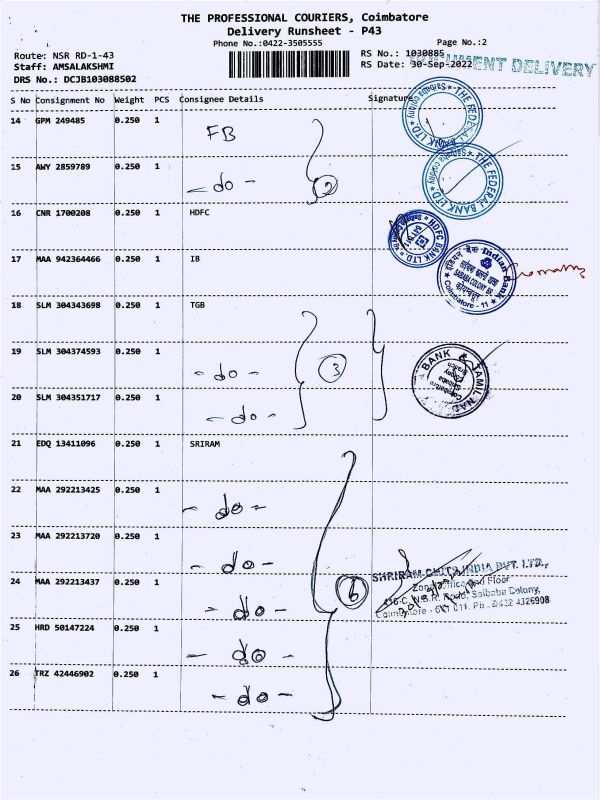 THE PROFESSIONAL COURIERS, Coimbatore
Delivery Runsheet - P43
Phone No.:0422-3505555
Page No.:2
Route: NSR RD-1-43
RS No.: 1030885
Staff: AMSALAKSHMI
RS Date: 30-Sep-2022
DOCUMENT DELIVERY
DRS No.: DCJB103088502
S No Consignment No Weight PCS Consignee Details Signature
14 GPM 249485 0.250 1 FB
THE FEDERAL BANK LTD. * Saibaba colony *
15 AWY 2859789 0.250 1 - do - 2
THE FEDERAL BANK LTD. * Saibaba colony *
16 CNR 1700208 0.250 1 HDFC
HDFC BANK LTD.
17 MAA 942364466 0.250 1 IB
इंडियन बैंक Indian Bank
SAIBABA COLONY BR.
Coimbatore - 11
18 SLM 304343698 0.250 1 TGB
19 SLM 304374593 0.250 1 - do - 3
TAMIL NAD BANK
20 SLM 304351717 0.250 1 - do -
21 EDQ 13411096 0.250 1 SRIRAM
22 MAA 292213425 0.250 1 - do -
23 MAA 292213720 0.250 1 - do -
SHRIRAM CHITS INDIA PVT. LTD.,
24 MAA 292213437 0.250 1 - do - 6
Zonal Office IInd Floor
N.S.R. Road, Saibaba Colony,
Coimbatore - 641 011. Ph : 0422 4326908
25 HRD 50147224 0.250 1 - do -
26 TRZ 42446902 0.250 1 - do -